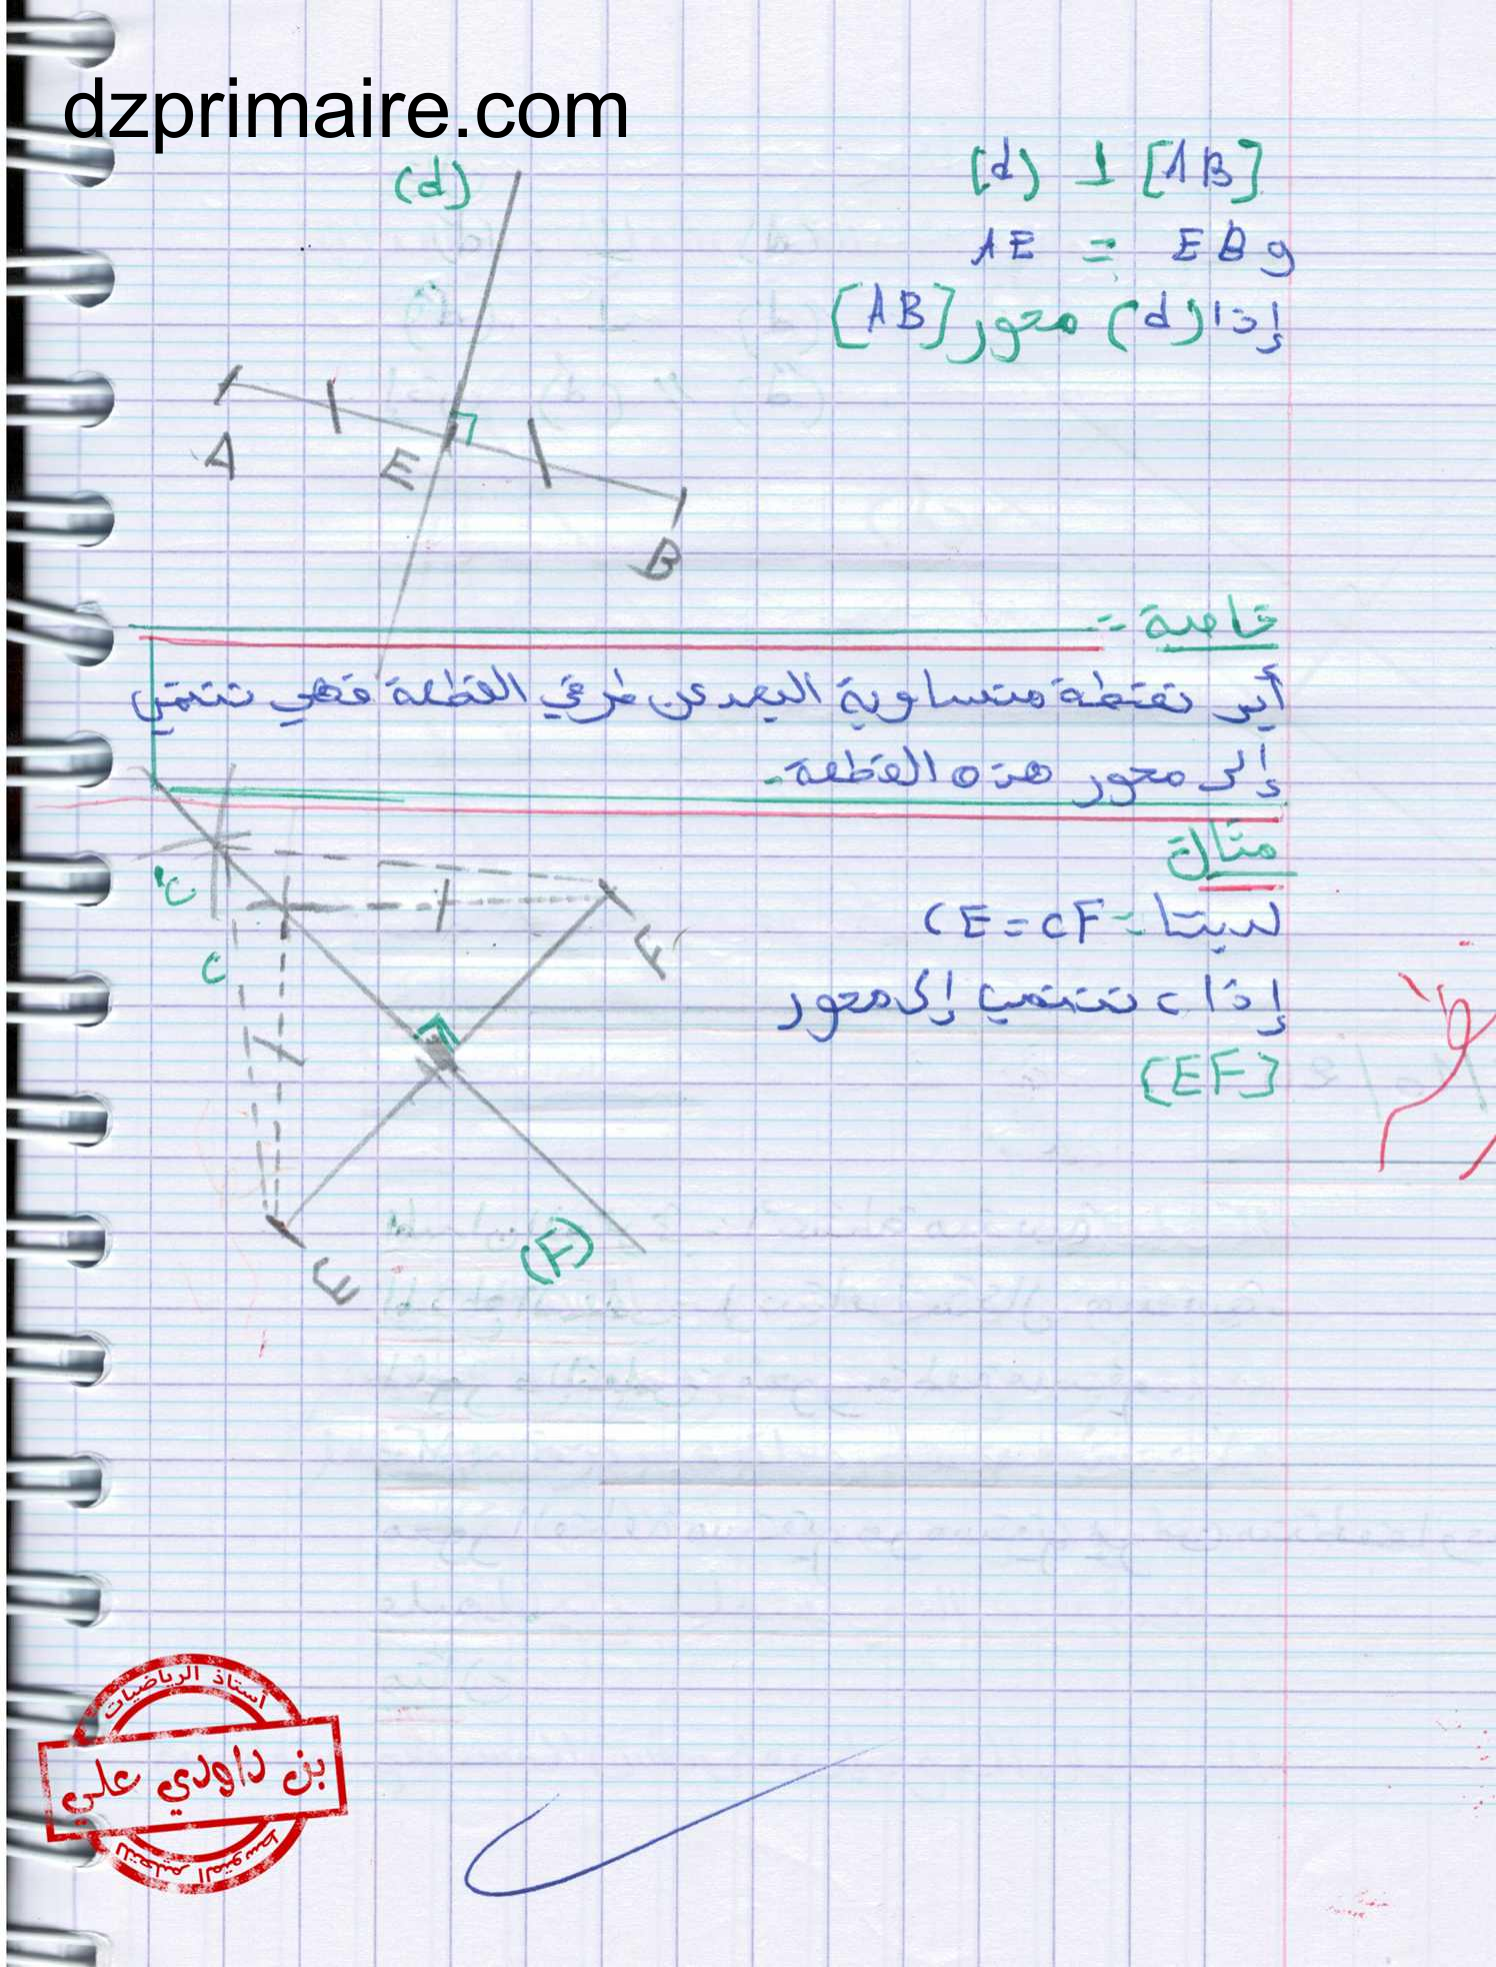 dzprimaire.com
(d) ⊥ [AB]
و AE = EB
إذا (d) محور [AB]
(d)
A
E
B
خاصة :-
أي نقطة متساوية البعد عن طرفي القطعة فهي تنتمي
إلى محور هذه القطعة.
مثال
لدينا CE = CF
إذا C تنتمي إلى محور
[EF]
C'
C
F
E
(F)
أستاذ الرياضيات
بن داودي علي
للتعليم المتوسط